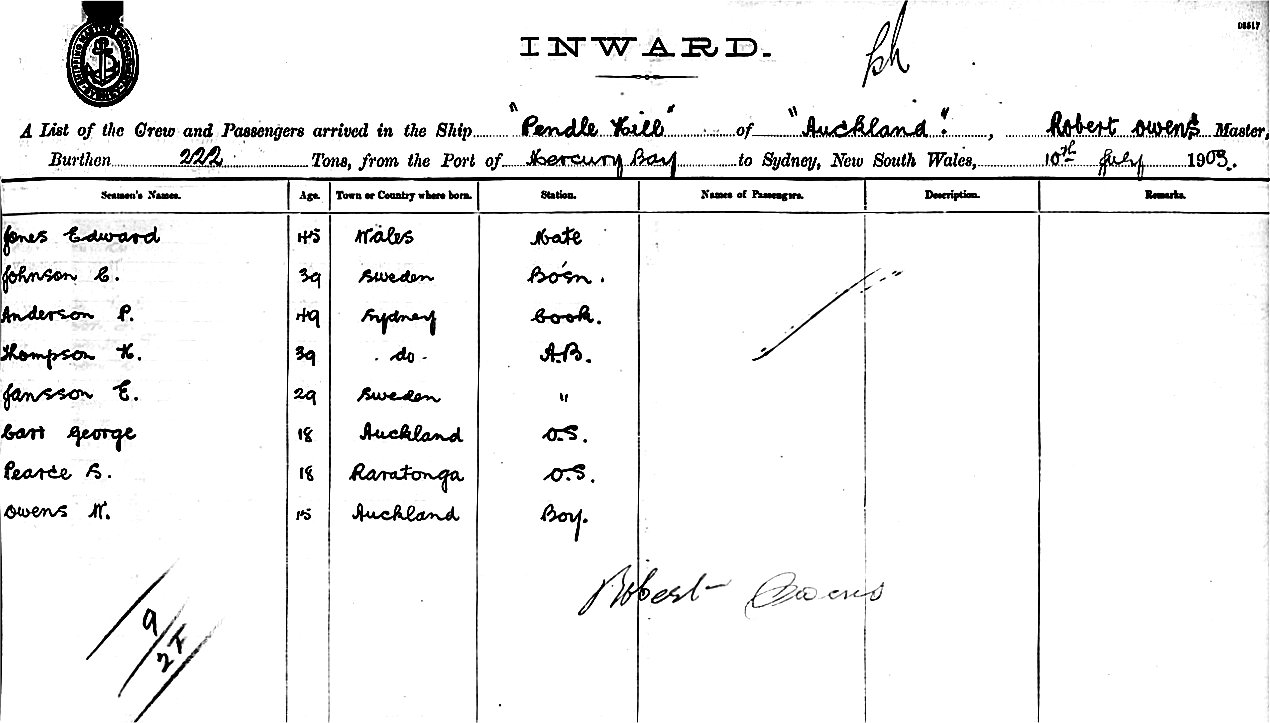 D8517
INWARD.
A List of the Crew and Passengers arrived in the Ship "Pendle Hill" of "Auckland", Robert Owens Master,
Burthen 222 Tons, from the Port of Mercury Bay to Sydney, New South Wales, 10th July 1903.
Seamen's Names. Age. Town or Country where born. Station. Names of Passengers. Description. Remarks.
Jones Edward 45 Wales Mate
Johnson C. 39 Sweden Bo'sn.
Anderson P. 49 Sydney Cook.
Thompson H. 39 - do - A.B.
Jansson E. 29 Sweden "
Carr George 18 Auckland O.S.
Pearce S. 18 Raratonga O.S.
Owens W. 15 Auckland Boy.
Robert Owens
9